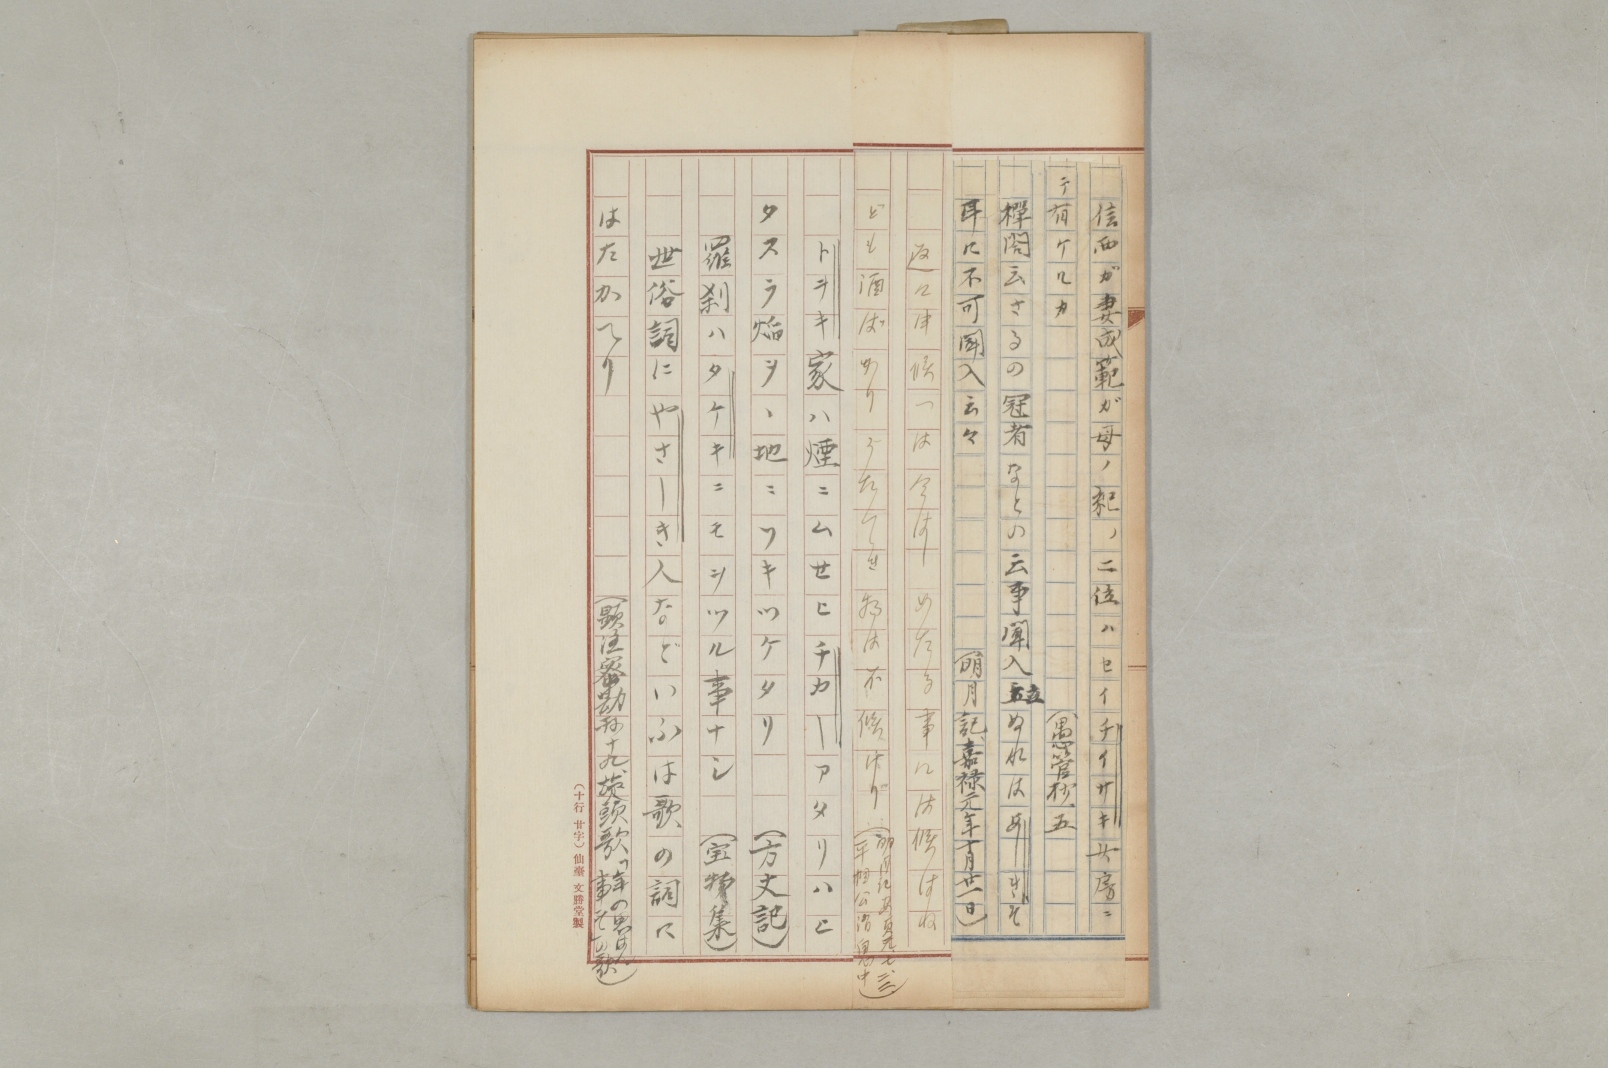 信西ガ妻成範ガ母ノ紀ノ二位ハセイチイサキ女房ニ
テ有ケルカ
(愚管抄五)
禅閤云さるの冠者なとの云事聞入
ぬれはあしきそ
耳に不可聞入云々
(明月記嘉禄元年十月廿一日)
返に申候つは今はしめたる事には候はね
ども酒ばかりうたてき物は不候はず
トヲキ家ハ煙ニムセヒチカーアタリハヒ
タスラ焔ヲヽ地ニツキツケタリ
(方丈記)
羅刹ハタケキニモヲツル事ナシ
(宝物集)
世俗詞にやさしき人などいふは歌の詞に
はたかへり
(顕注密勘抄十九旋頭歌
(十行廿字) 仙臺 文勝堂製